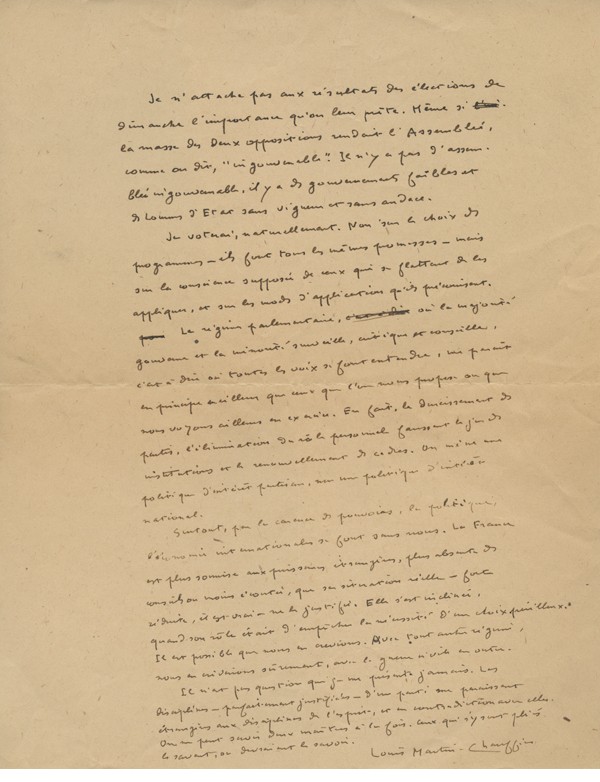 Je n'attache pas aux résultats des élections de
dimanche l'importance qu'on leur prête. Même si
la masse des deux oppositions rendait l'Assemblée,
comme on dit, "ingouvernable". Il n'y a pas d'assem-
blée ingouvernable, il y a des gouvernements faibles et
des hommes d'Etat sans vigueur et sans audace.
Je voterai, naturellement. Non sur le choix des
programmes – ils font tous les mêmes promesses – mais
sur la conscience supposée de ceux qui se flattent de les
appliquer, et sur les modes d'application qu'ils préconisent.
Le régime parlementaire, où la majorité
gouverne et la minorité surveille, critique et conseille,
c'est à dire où toutes les voix se font entendre, me paraît
en principe meilleur que ceux que l'on nous propose ou que
nous voyons ailleurs en exercice. En fait, le durcissement des
partis, l'élimination du rôle personnel faussent le jeu des
institutions et le renouvellement des cadres. On mène une
politique d'intérêt partisan, non une politique d'intérêt
national.
Surtout, par la carence des pouvoirs, la politique,
l'économie internationales se font sans nous. La France
est plus soumise aux puissances étrangères, plus absente des
conseils ou moins écoutée, que sa situation réelle – fort
réduite, il est vrai – ne le justifie. Elle s'est inclinée,
quand son rôle était d'empêcher la nécessité d'un choix périlleux.
Il est possible que nous en crevions. Avec tout autre régime,
nous en crèverions sûrement, avec la guerre civile en outre.
Il n'est pas question que je me présente jamais. Les
disciplines – parfaitement justifiées – d'un parti me paraissent
étrangères aux disciplines de l'esprit, et en contradiction avec elles.
On ne peut servir deux maîtres à la fois. Ceux qui s'y sont pliés
le savent, ou devraient le savoir.
Louis Martin-Chauffier